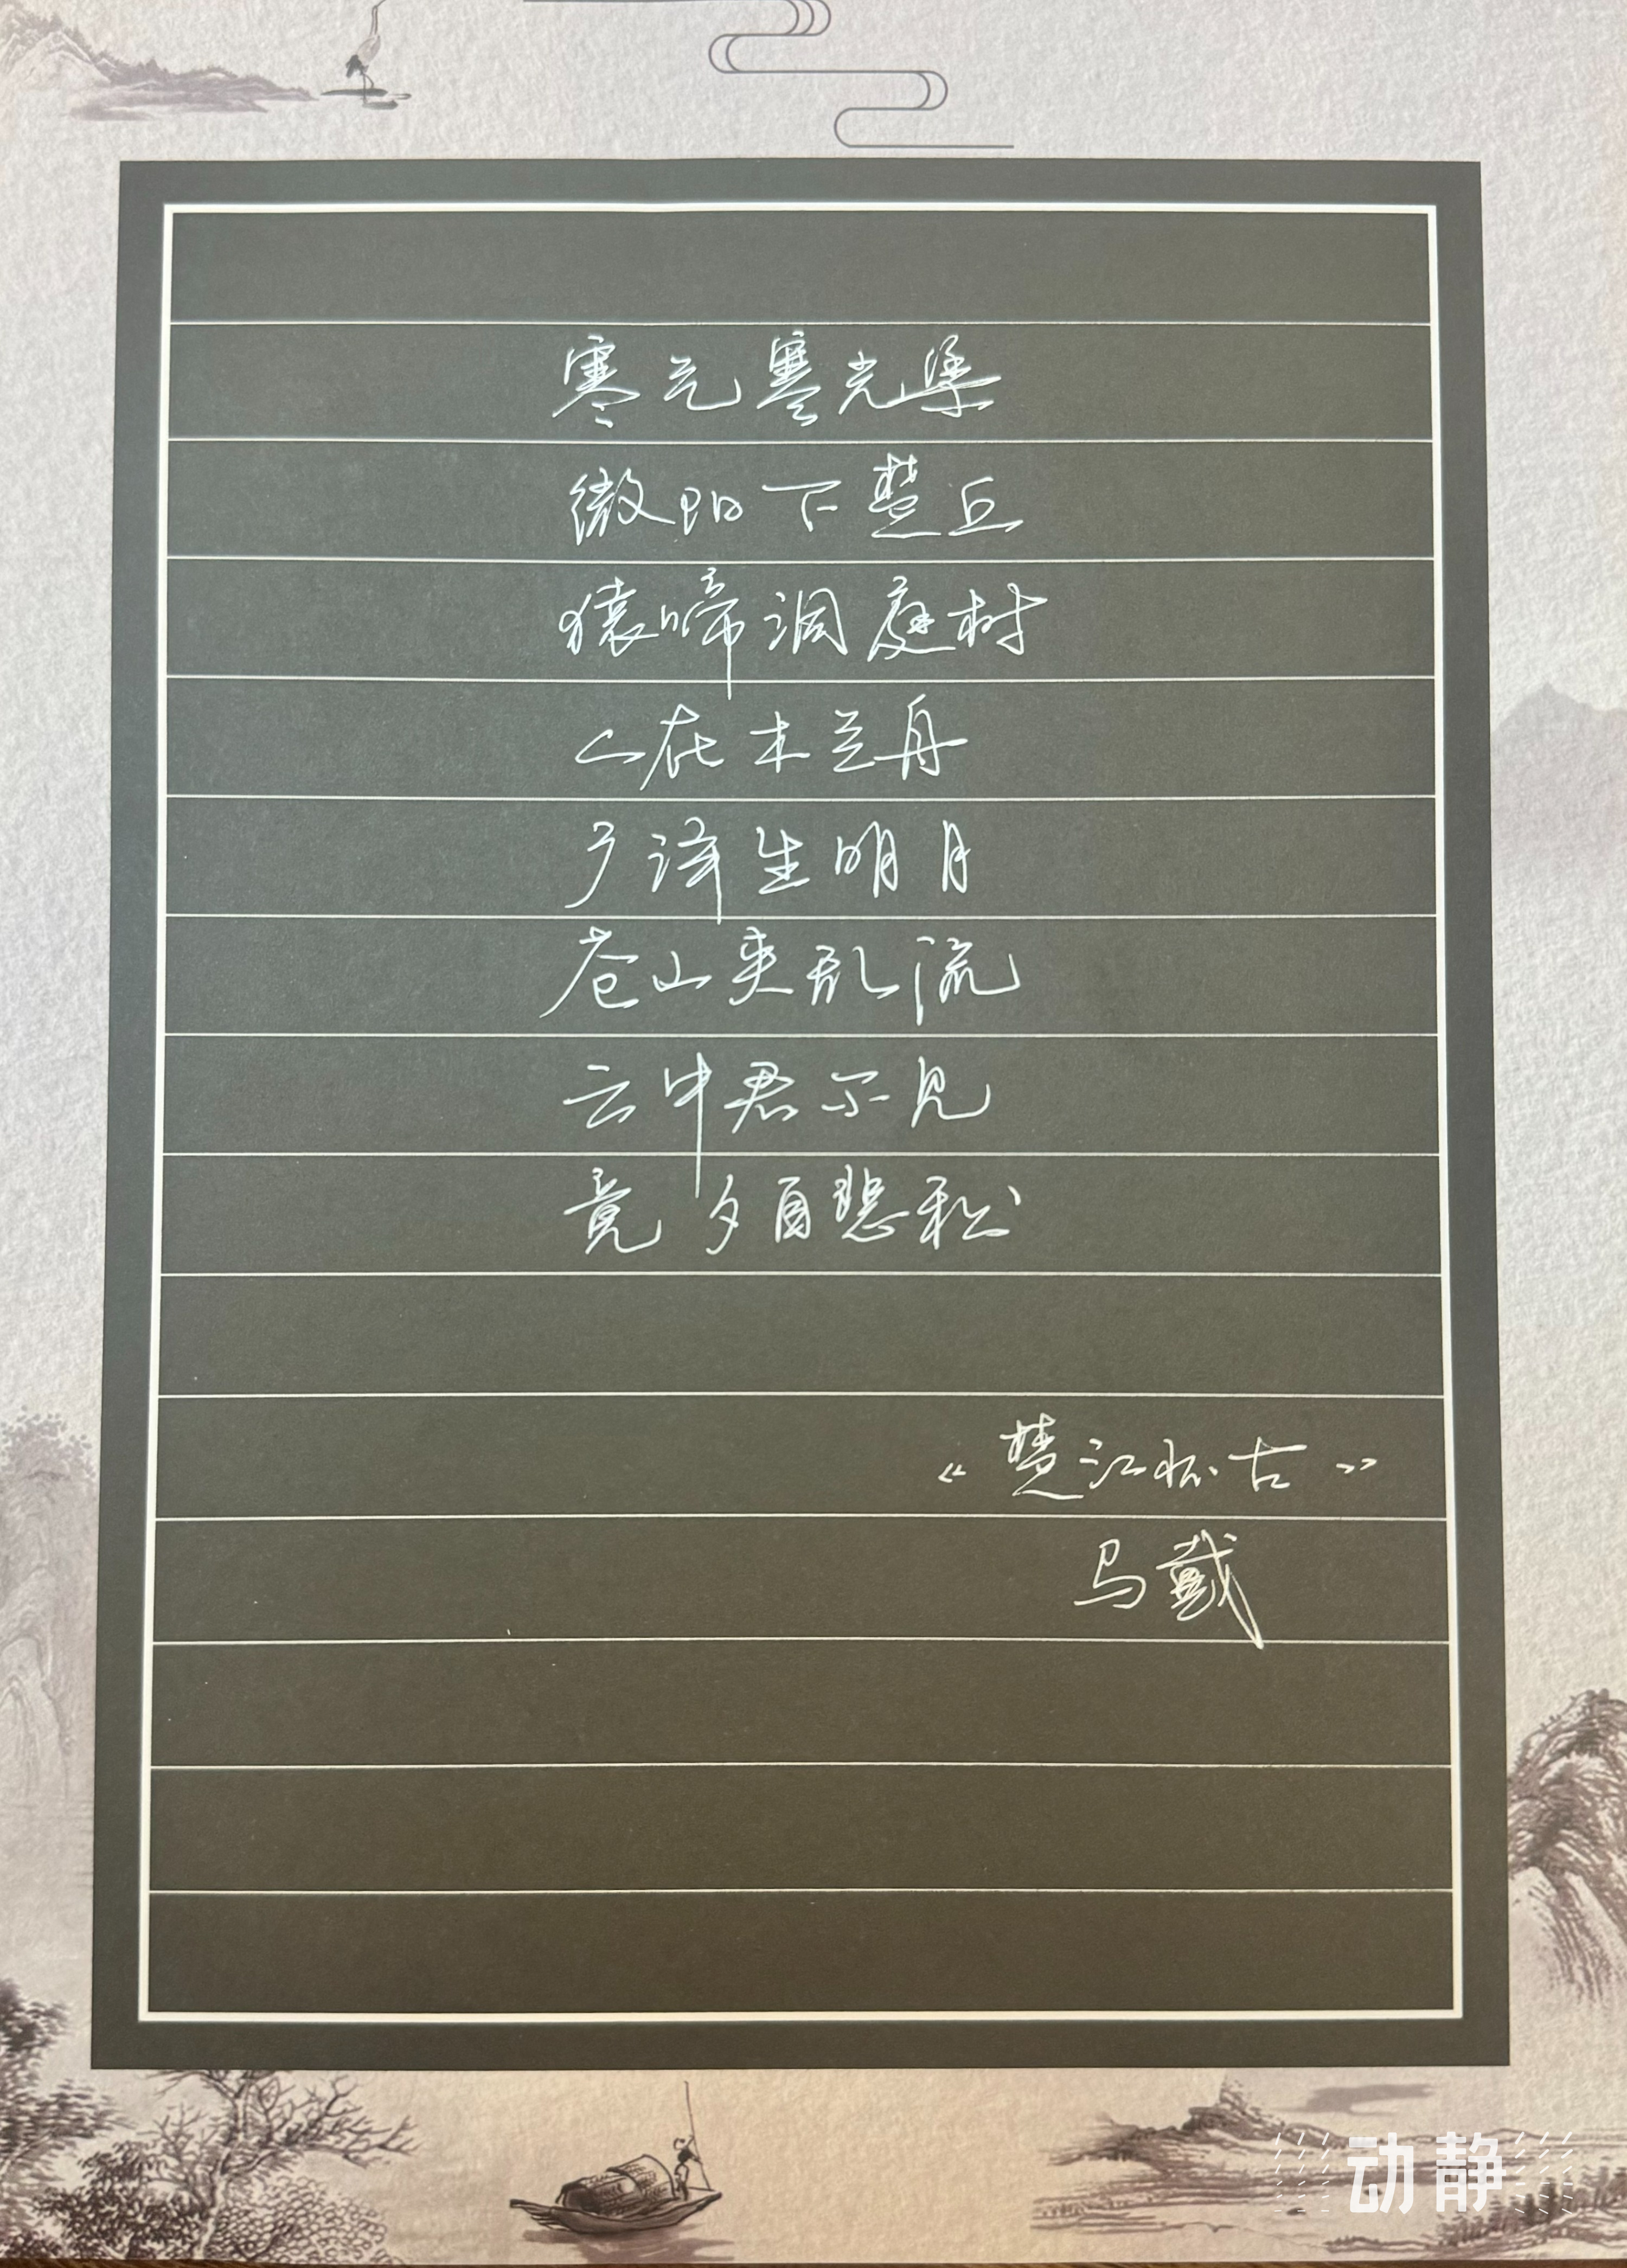 寒气寒光集
微阳下楚丘
猿啼洞庭树
人在木兰舟
广泽生明月
苍山夹乱流
云中君不见
竟夕自悲秋
《楚江怀古》
马戴
动静